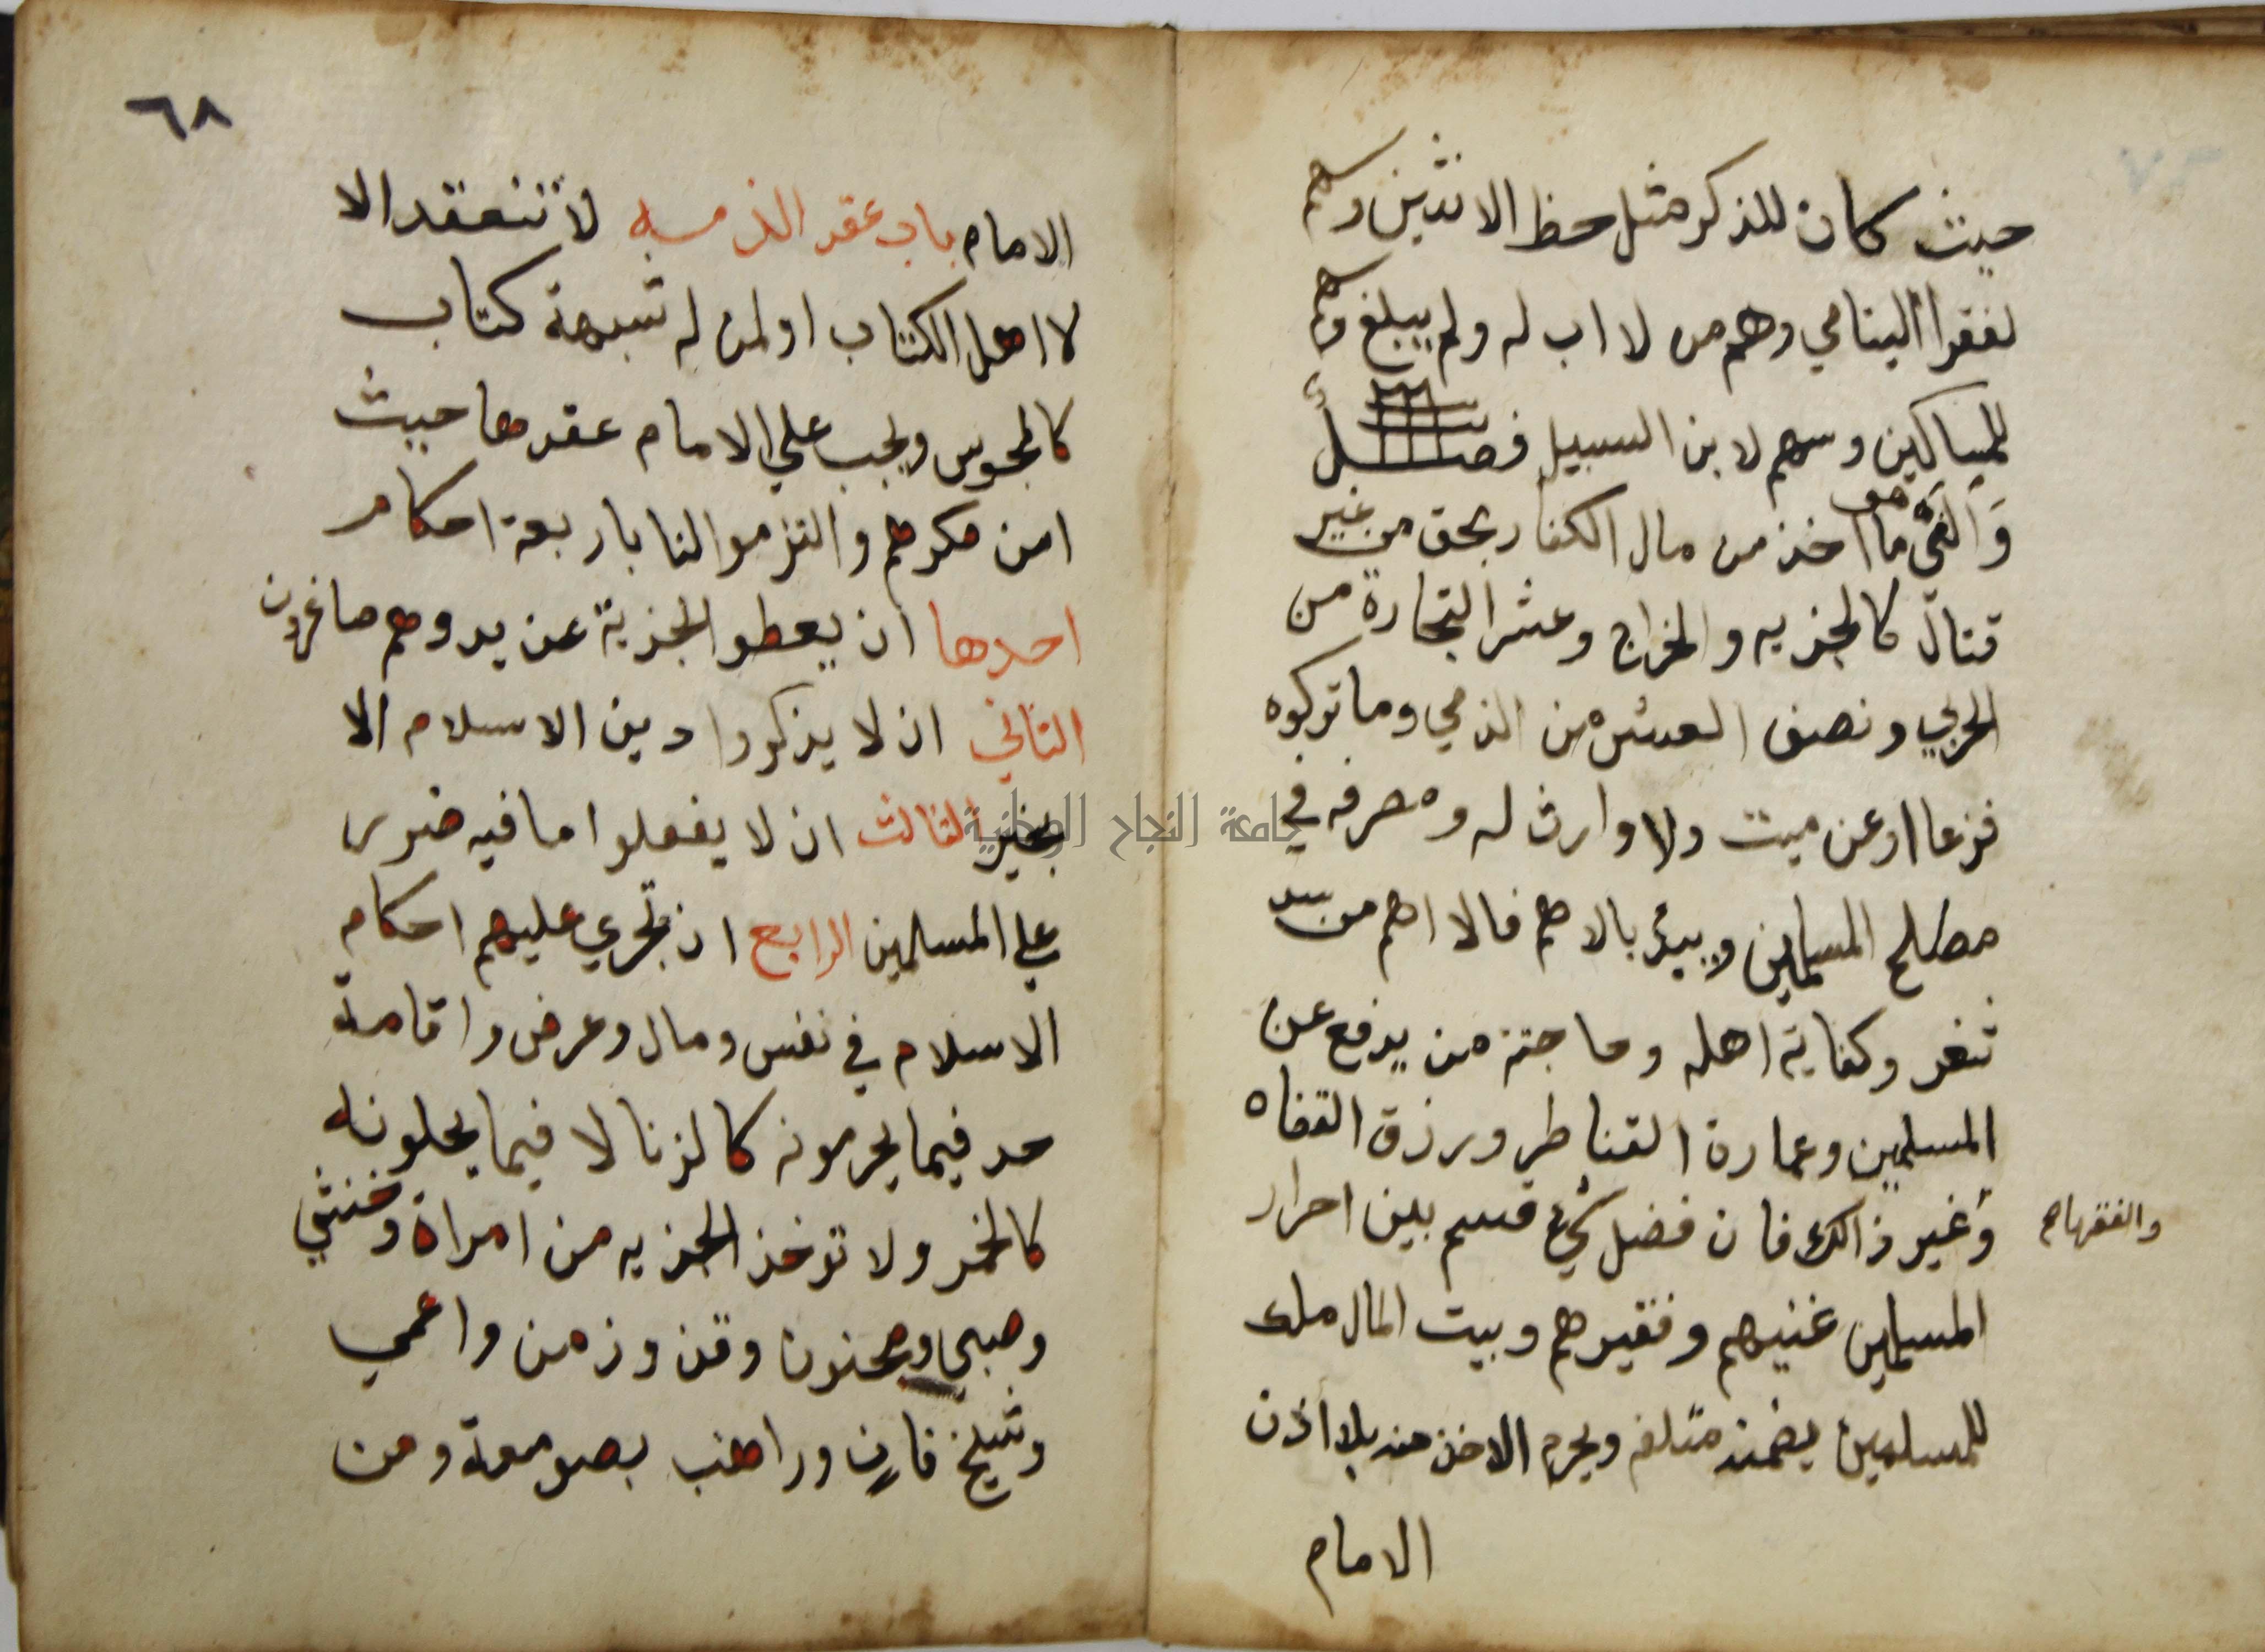 حيث كان للذكر مثل حظ الانثيين وسهم
لفقرا اليتامي وهم من لا اب له ولم يبلغ وسهم
للمساكين وسهم لابن السبيل فصل
وَالفَيْ هو ما اخذ من مال الكفار بحق من غير
قتال كالجزيه والخراج وعشر التجارة من
الحربي ونصف العشر من الذمي وما تركوه
فزعا اوعن ميت ولا وارث له ومصرفه في
مصالح المسلمين ويبدؤ بالاهم فالاهم من سد
ثغر وكفاية اهله وحاجة من يدفع عن
المسلمين وعمارة القناطر ورزق القضاه
والفقهاء
وغير ذالك فان فضل شيء قسم بين احرار
المسلمين غنيهم وفقيرهم وبيت المال ملك
للمسلمين يضمنه متلفه ويحرم الاخذ منه بلا اذن
الامام
٦٨
الامام باب عقد الذمه لا تنعقد الا
لا اهل الكتاب او لمن له شبهة كتاب
كالمجوس ويجب علي الامام عقدها حيث
امن مكرهم والتزموا لنا باربعة احكام
احدها ان يعطو الجزية عن يد وهم صاغرون
الثاني ان لا يذكروا دين الاسلام الا
بخير الثالث ان لا يفعلوا ما فيه ضرر
علي المسلمين الرابع ان تجري عليهم احكام
الاسلام في نفس ومال وعرض واقامة
حد فيما يحرمونه كالزنا لا فيما يحلونه
كالخمر ولا توخذ الجزيه من امراة وخنثي
وصبي ومجنون وقن وزمن واعمي
وشيخ فانٍ وراهب بصومعة ومن
جامعة النجاح الوطنية